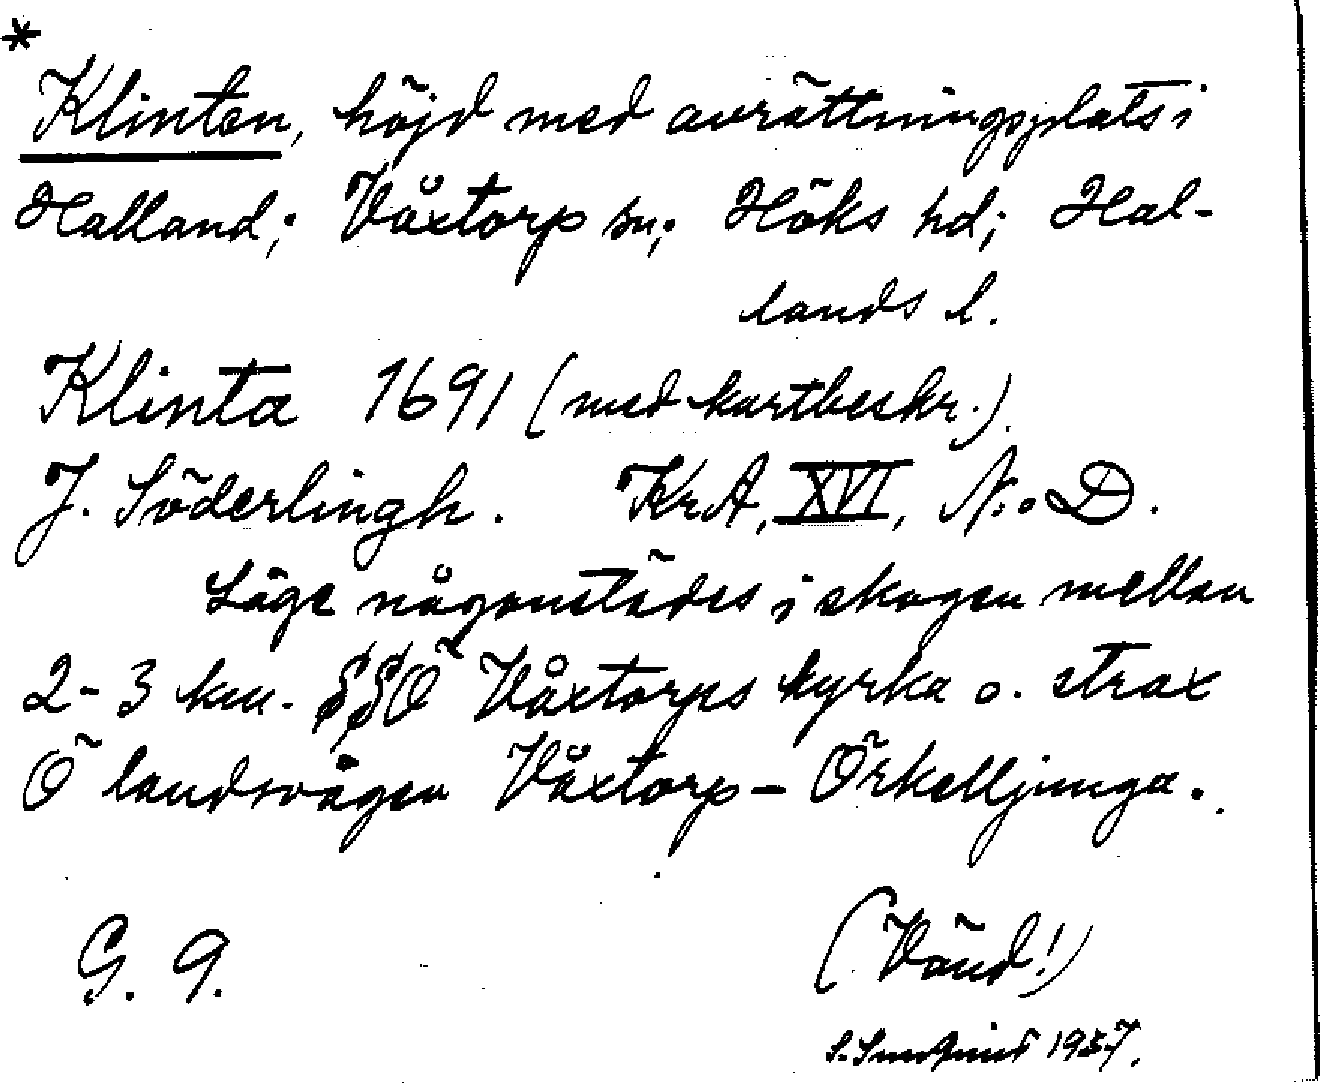 *
Klinten, höjd med avrättningsplats i
Halland; Våxtorp sn; Höks hd; Hal-
lands l.
Klinta 1691 (med kartbeskr.)
J. Söderlingh. KrA, XVI, N:o D.
Läge någonstädes i skogen mellan
2-3 km. SSÖ Våxtorps kyrka o. strax
Ö landsvägen Våxtorp - Örkelljunga.
G. 9.
(Vänd!)